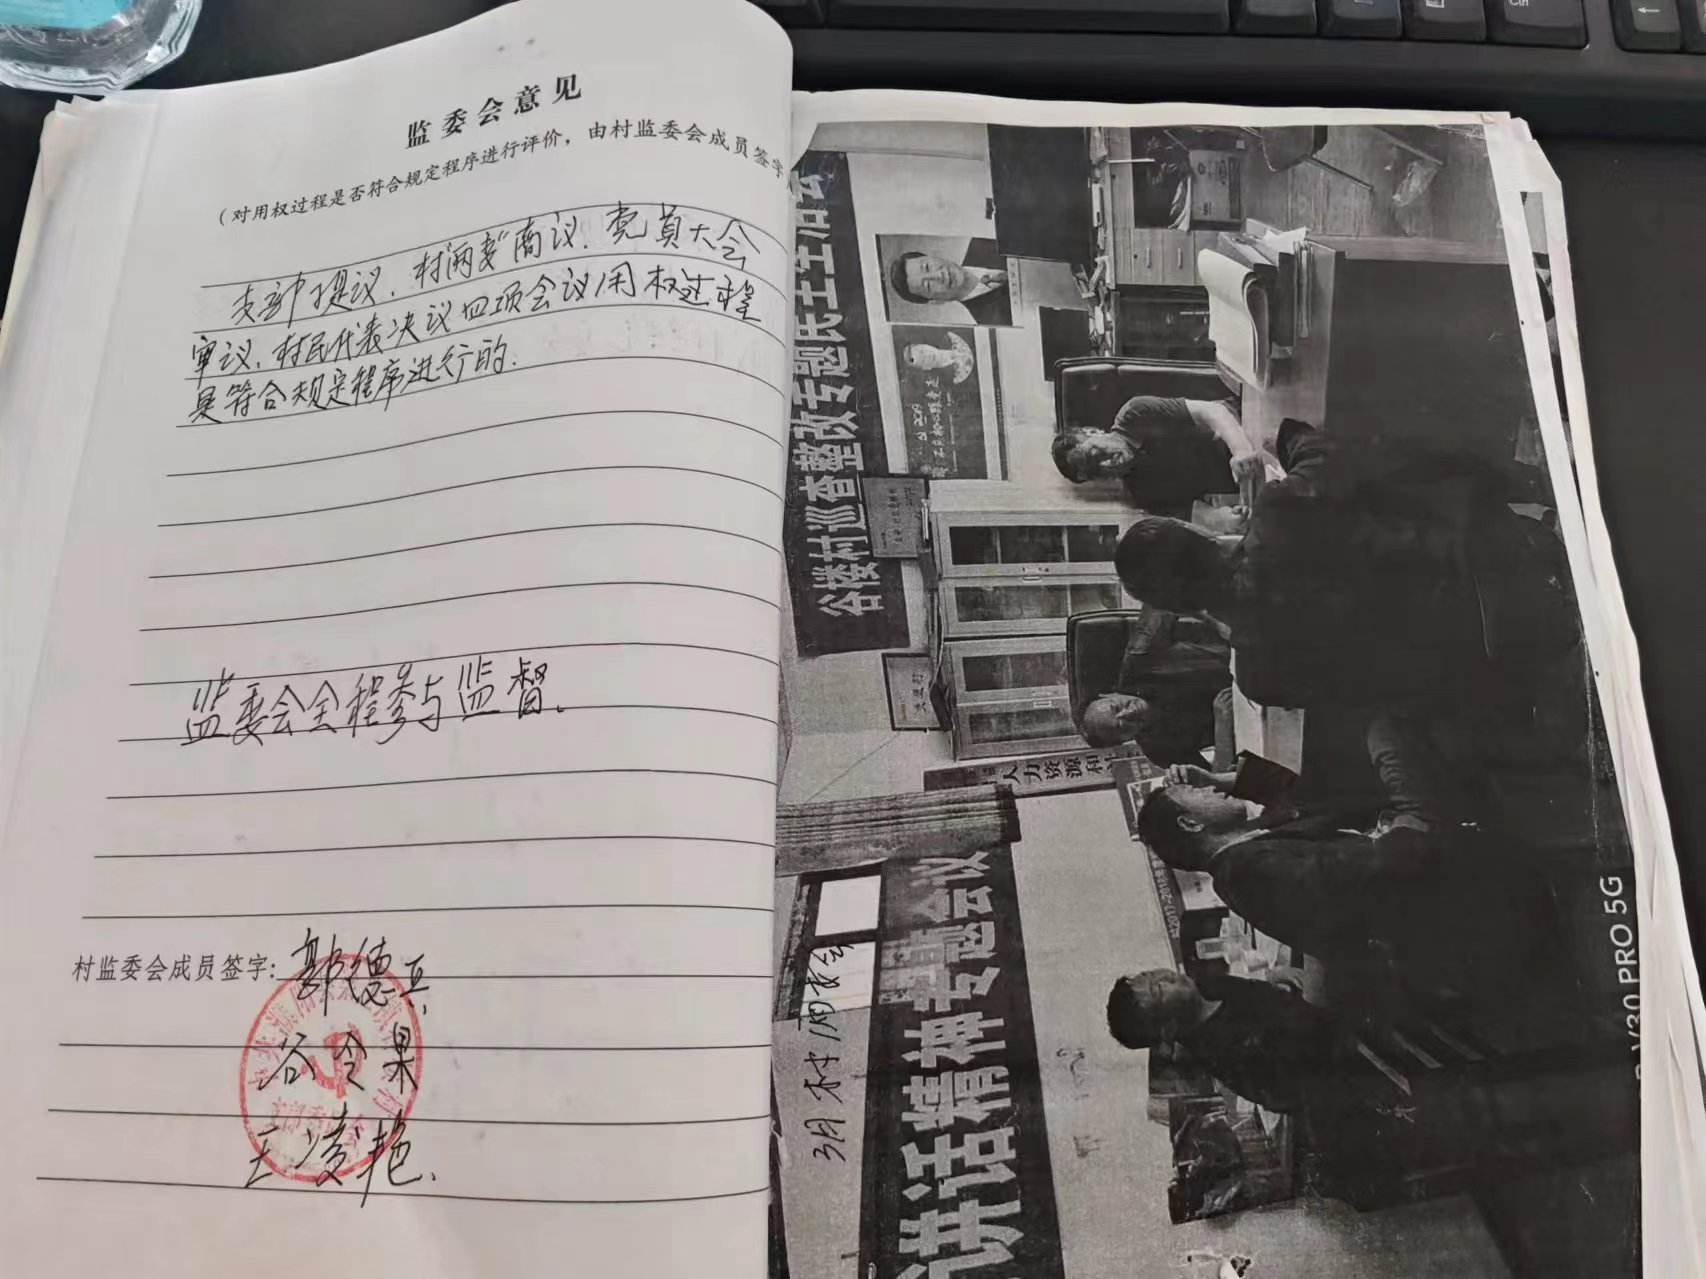 监委会意见
（对用权过程是否符合规定程序进行评价，由村监委会成员签字
支部提议、村两委"商议、党员大会
审议、村民代表决议四项会议用权过程
是符合规定程序进行的.
监委会全程参与监督.
村监委会成员签字：郭德兵.
谷令果
王凌艳.
谷楼村巡查整改专题民主生活会
人力资源和社
讲话精神专题会议
3月村两委会
V30 PRO 5G
Ctrl